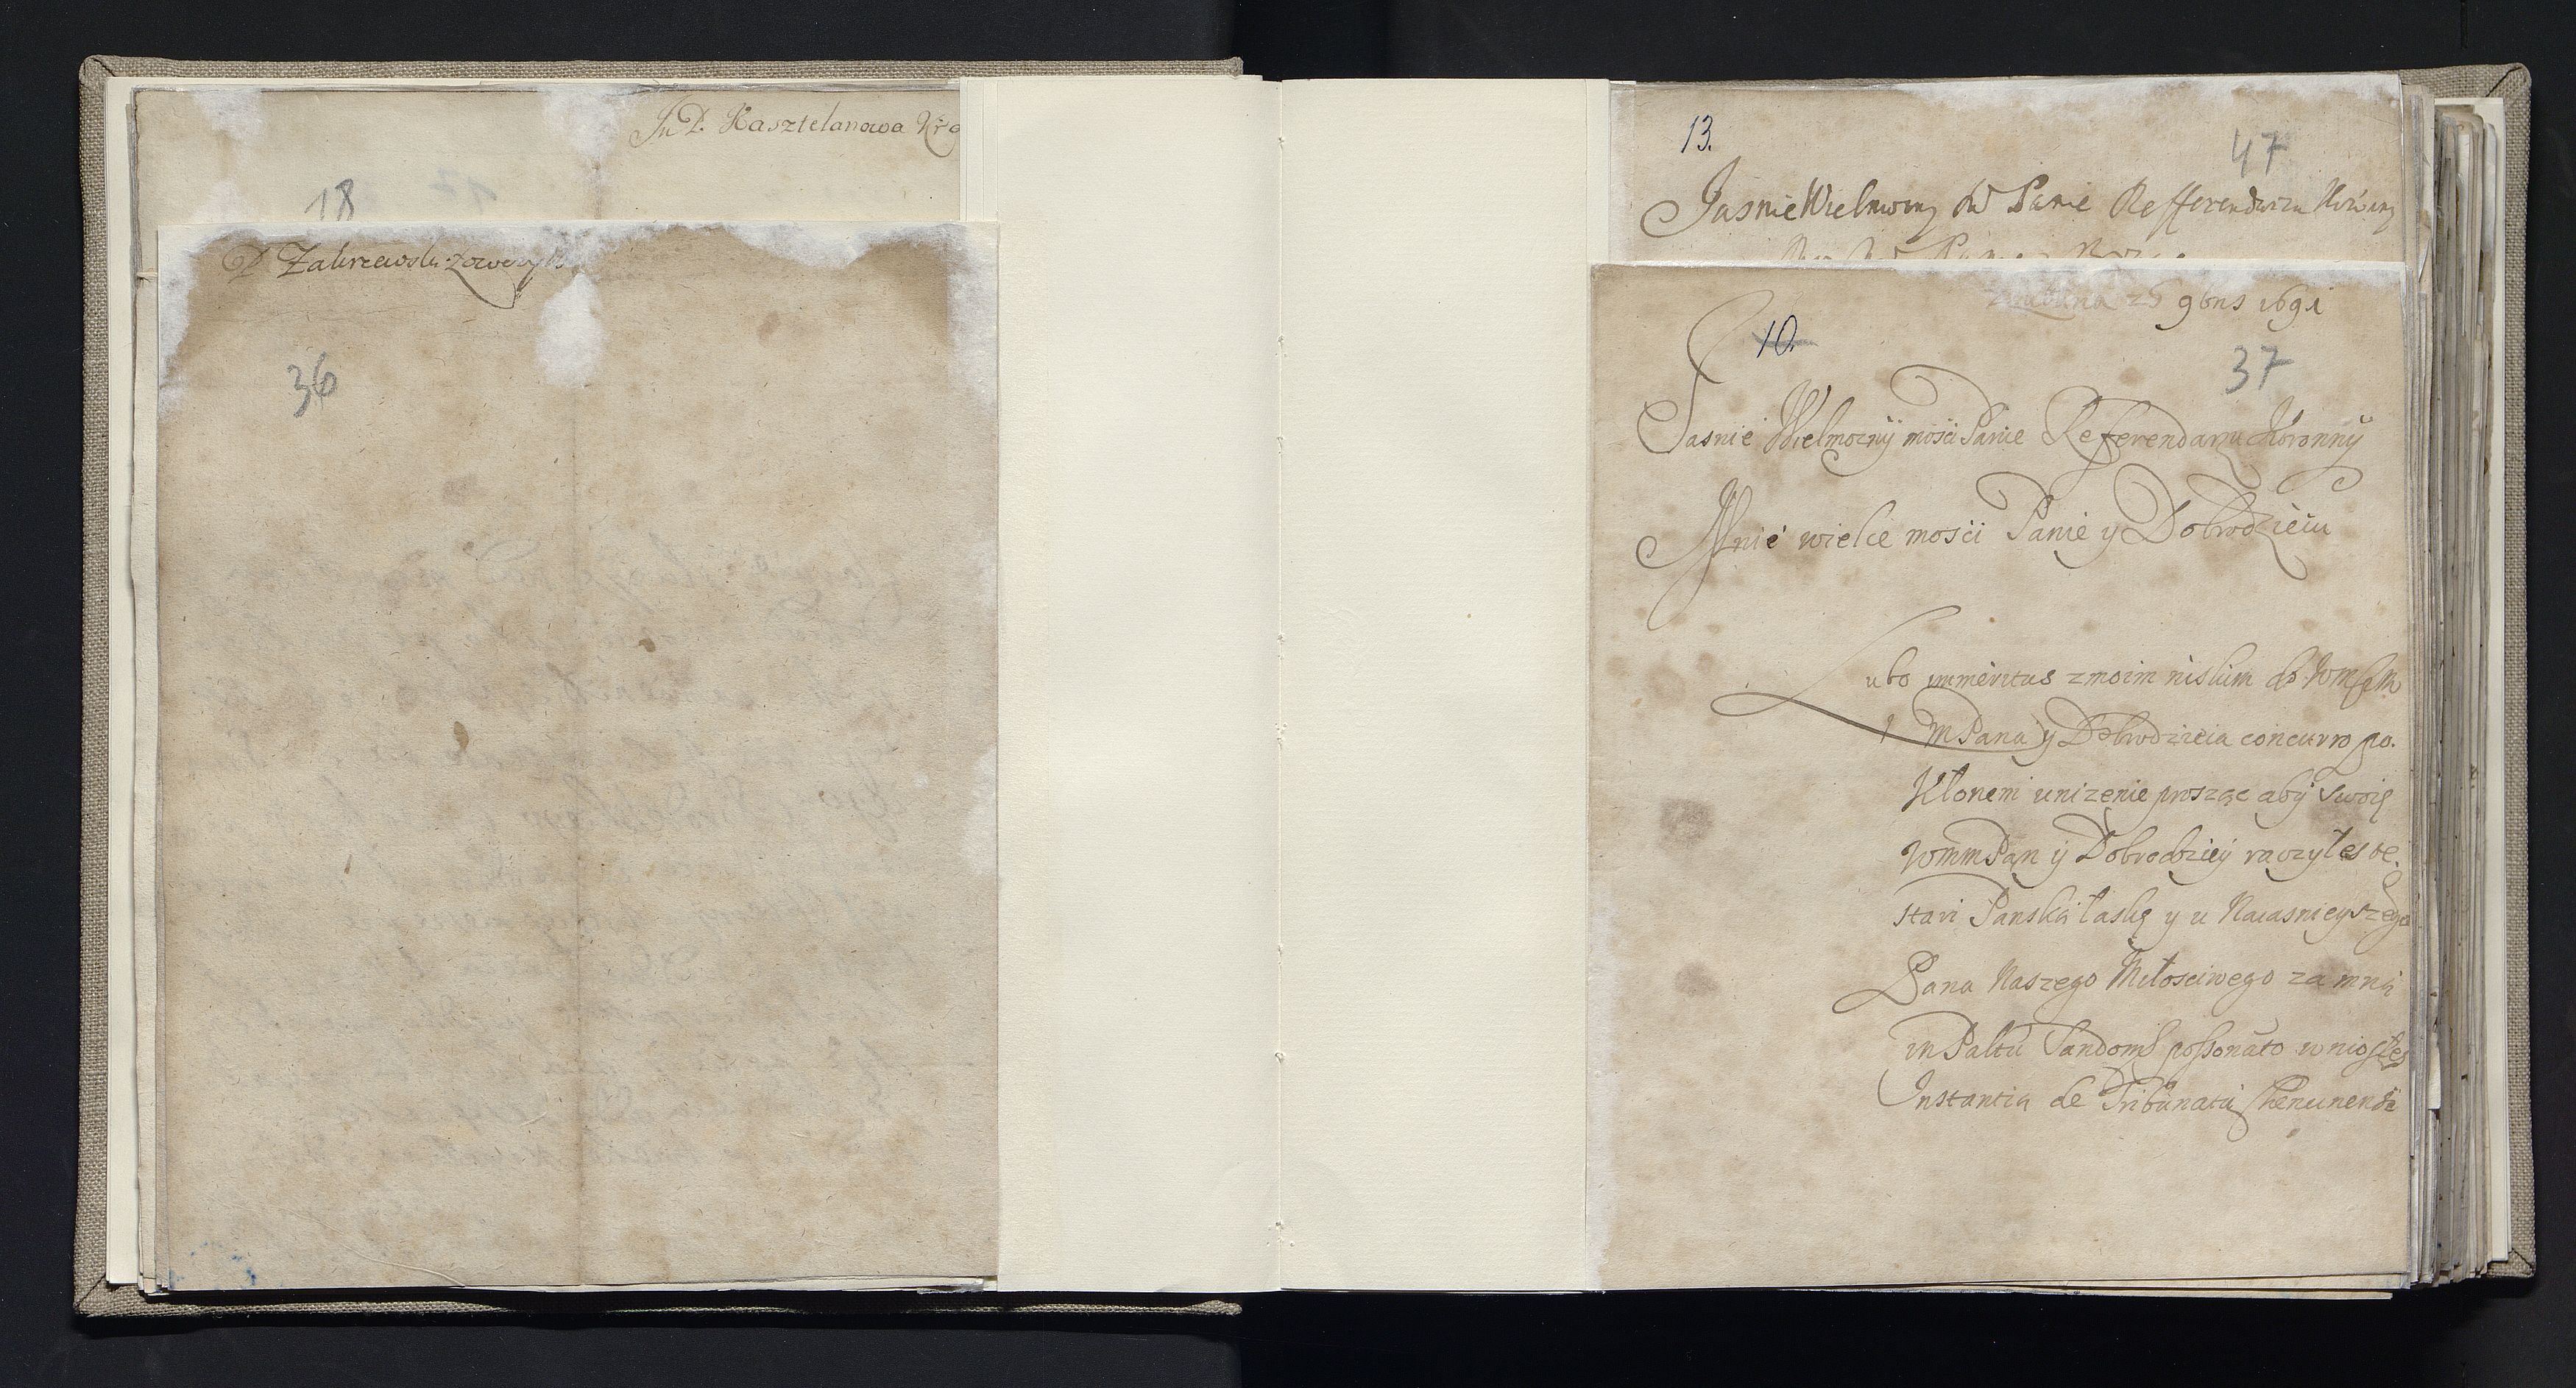 Jn P. Kasztelanowa Kra
18
P Zakrzewski
36
13.
47
Jasnie Wielmozny Mś Panie Refferendarzu Koronny
z Lublina 25 9bris 1691
10.
37
Jasnie Wielmozny mosci Panie Referendarzu Koronny
Mnie wielce mosci Panie y Dobrodzieiu
Lubo immeritus zmoim niskim do WMM
M Pana y Dobrodzieia concurro po.
Kłonem unizenie prosząc aby swoią
WMM Pan y Dobrodziey raczyłes ve.
stari Panską łaską y u Naiasnieyszego
Pana Naszego Miłosciwego za mną
in Paltu Sandom possonato wniosłes
Instantią de Tribunatu